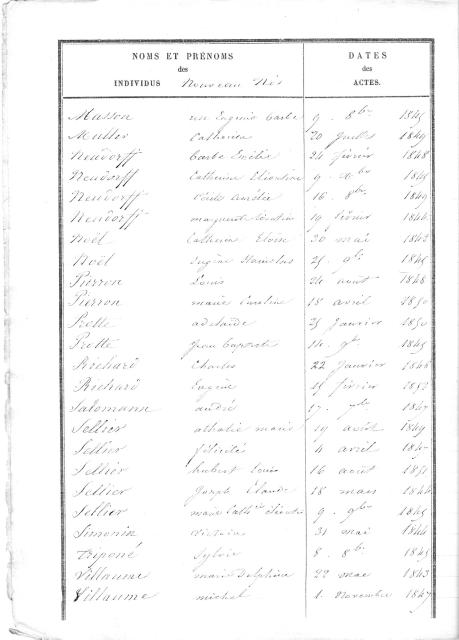 NOMS ET PRÉNOMS
des
INDIVIDUS Nouveau Nés
DATES
des
ACTES.
Masson Eugénie Barbe 9. 8bre 1845
Muller Catherine 20 1849
Neudorff Barbe Emélie 24 février 1848
Neudorff Catherine 9. 1845
Neudorff Aurélie 16. 8bre 1849
Neudorff Marguerite 19 février 1844
Noël Catherine Eloïse 30 mai 1843
Noël Eugène Stanislas 25. 1845
Pierron Louis 24 août 1848
Pierron Marie 15 avril 1850
Prette adelaïde 25 Janvier 1850
Prette Jean Baptiste 14. 1845
Richard Charles 22 Janvier
Richard Eugène février 1852
Salomann andré 17. 7bre
Sellier marie 19 août 1849
Sellier félicité 4 avril
Sellier hubert Louis 16 août 1851
Sellier Joseph Claude 18 mars 1844
Sellier marie Cathne 9. 9bre 1845
Simonin Victoire 31 mai 1844
Triponé Sylvie 8. 8bre 1845
Villaume marie Delphine 22 mai 1843
Villaume michel 1. Novembre 1847